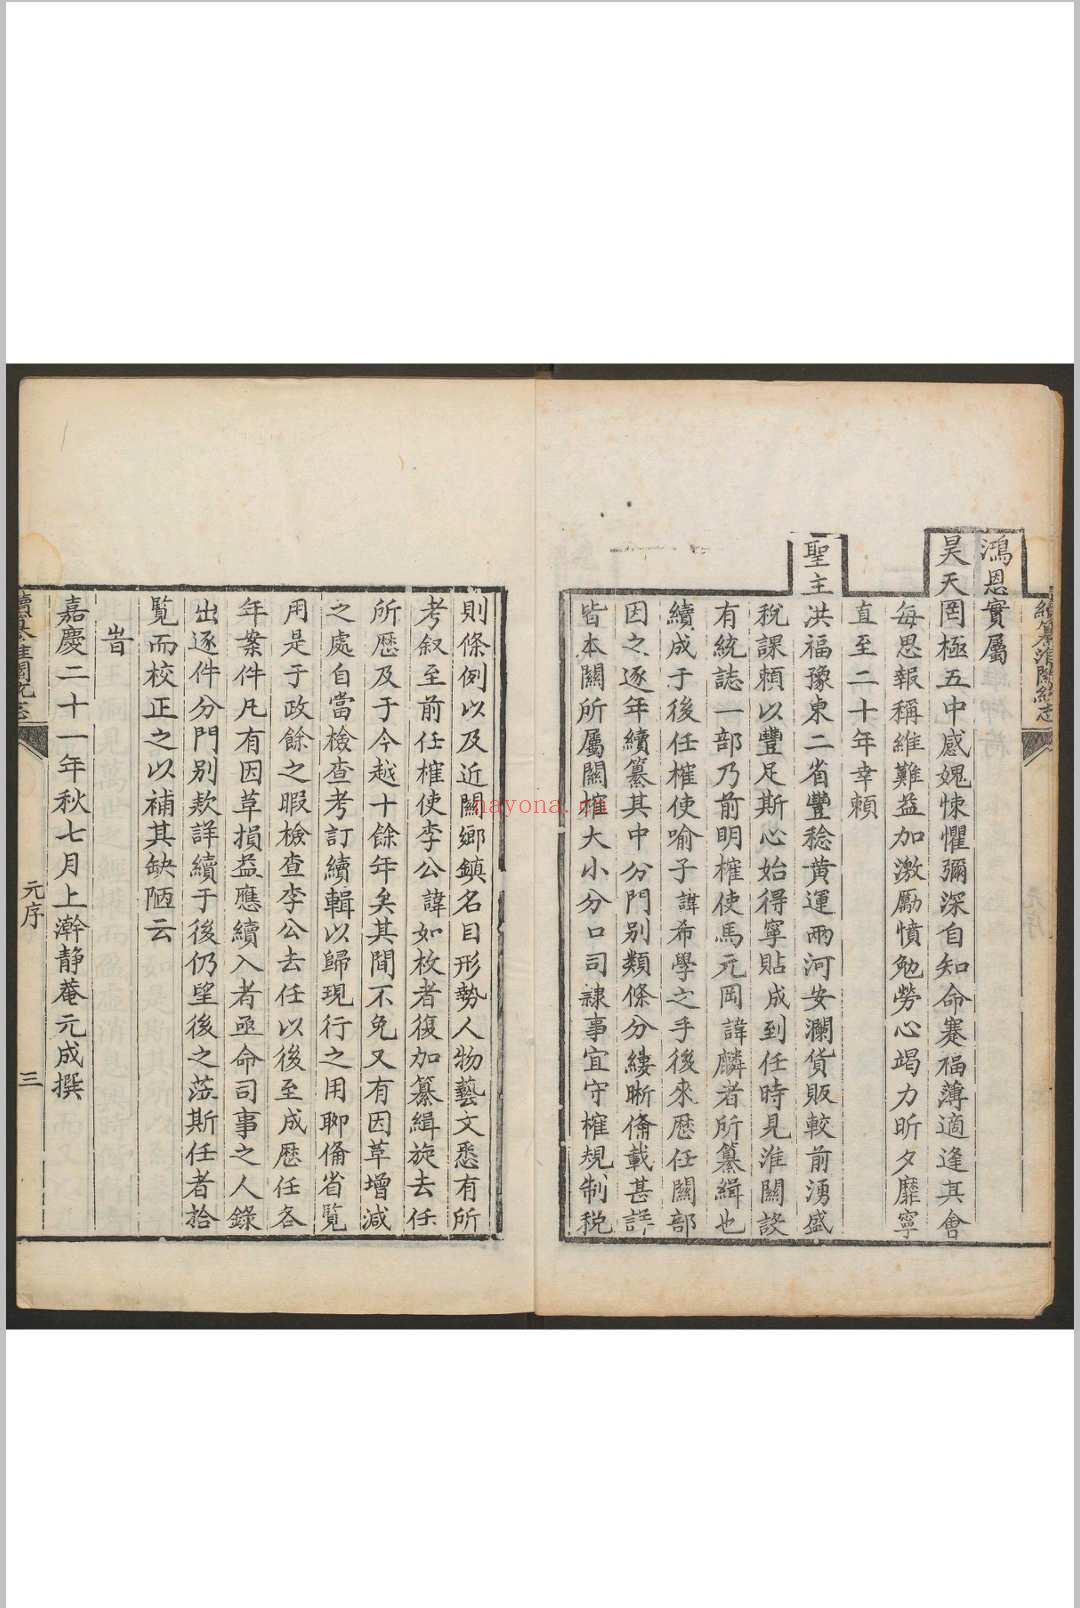 續纂淮關統志
鴻恩實屬
昊天罔極五中感媿悚懼彌深自知命蹇福薄適逢其會
每思報稱維難益加激勵憤勉勞心竭力昕夕靡寧
直至二十年幸賴
聖主洪福豫東二省豐稔黄運兩河安瀾貨販較前湧盛
稅課頼以豐足斯心始得寧貼成到任時見淮關設
有統誌一部乃前明榷使馬元岡諱麟者所纂緝也
續成于後任榷使喻子諱希學之手後來歷任關部
因之逐年續纂其中分門别類條分縷晰俻載甚詳
皆本關所屬關榷大小分口司隷事宜守榷規制税
則條例以及近關鄉鎮名目形勢人物藝文悉有所
考叙至前任榷使李公諱如枚者復加纂緝旋去任
所歷及于今越十餘年矣其間不免又有因草增减
之處自當檢查考訂續輯以歸現行之用聊俻省覽
用是于政餘之暇檢查李公去任以後至成歷任各
年案件凡有因草損益應續入者亟命司事之人錄
出逐件分門別欵詳續于後仍望後之蒞斯任者拾
覧而校正之以補其缺陋云
旹
嘉慶二十一年秋七月上澣靜菴元成撰
元序
三